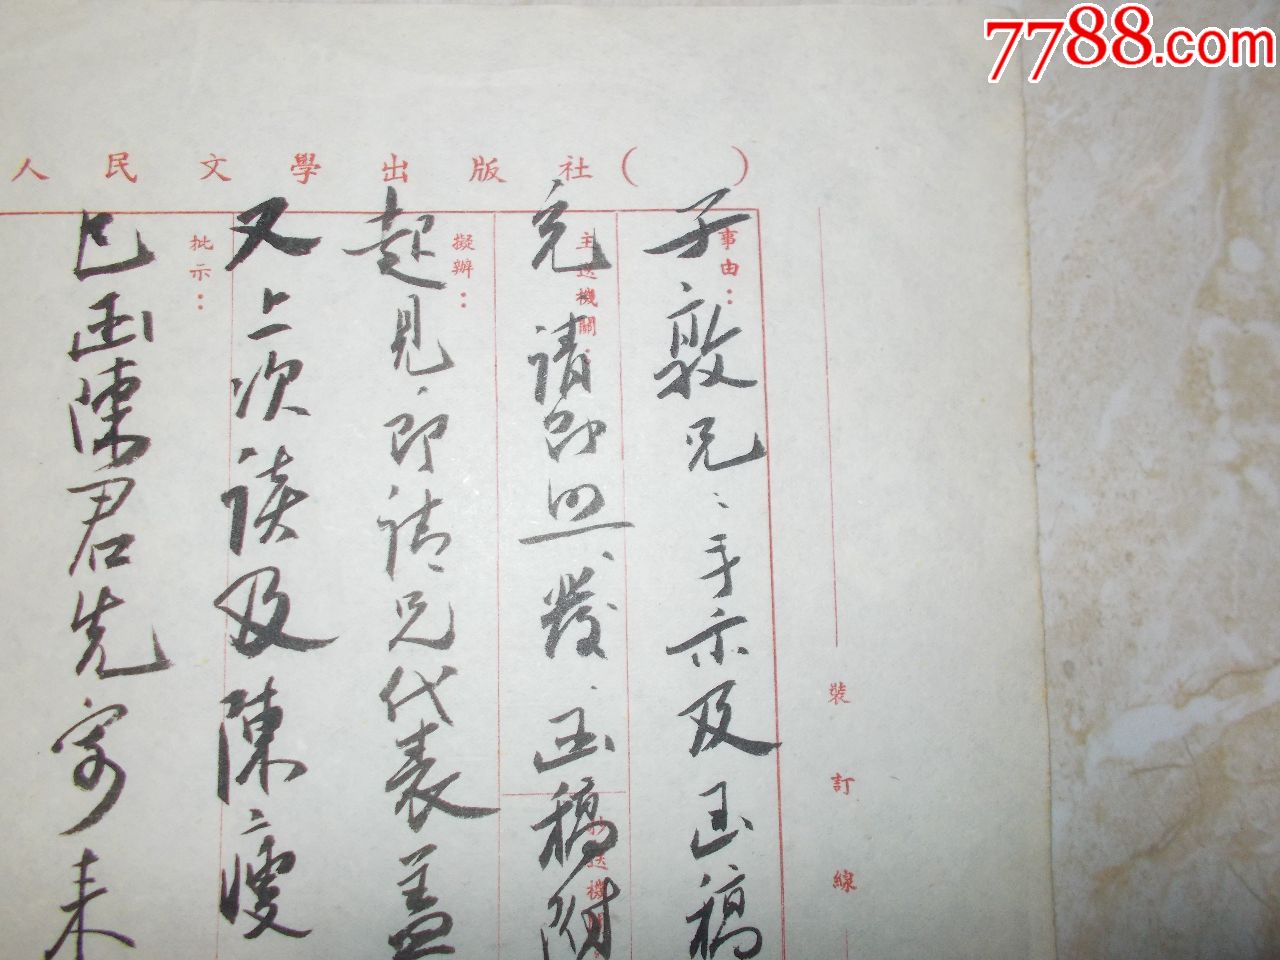 7788.com
人民文學出版社( )
裝訂線
事由:
子敦兄:手示及函稿
主送機關:
充請即照發.函稿附
抄送機關
擬辦:
起見,即請兄代表盖
又上次談及陳瘦
批示:
已函陳君先寄来